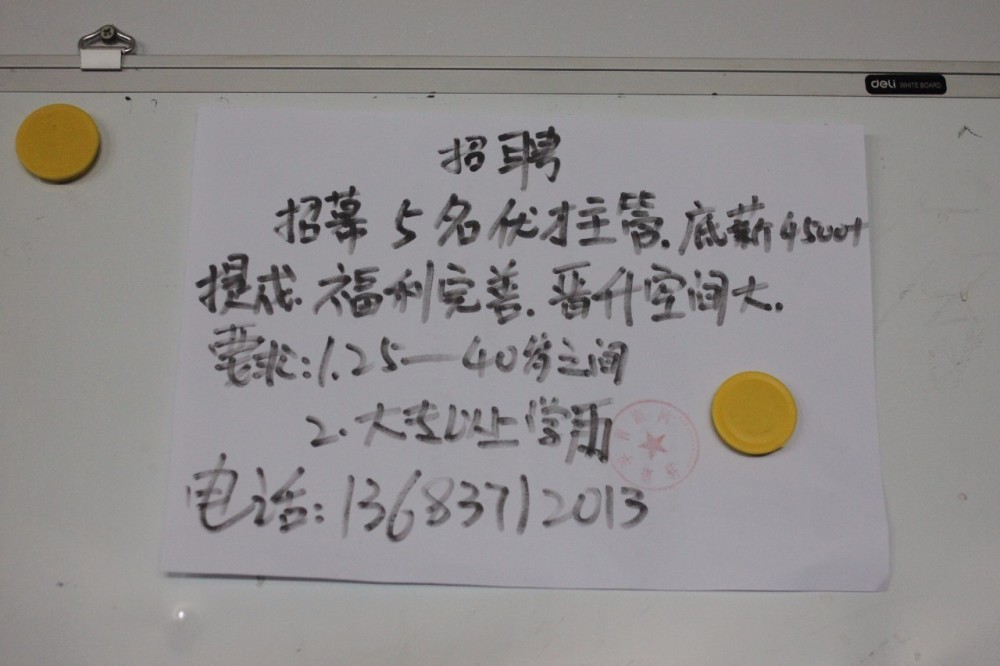 deli WHITE BOARD
招聘
招募5名优才主管.底薪4500+
提成.福利完善.晋升空间大.
要求:1.25—40岁之间
2.大专以上学历
电话:13683712013